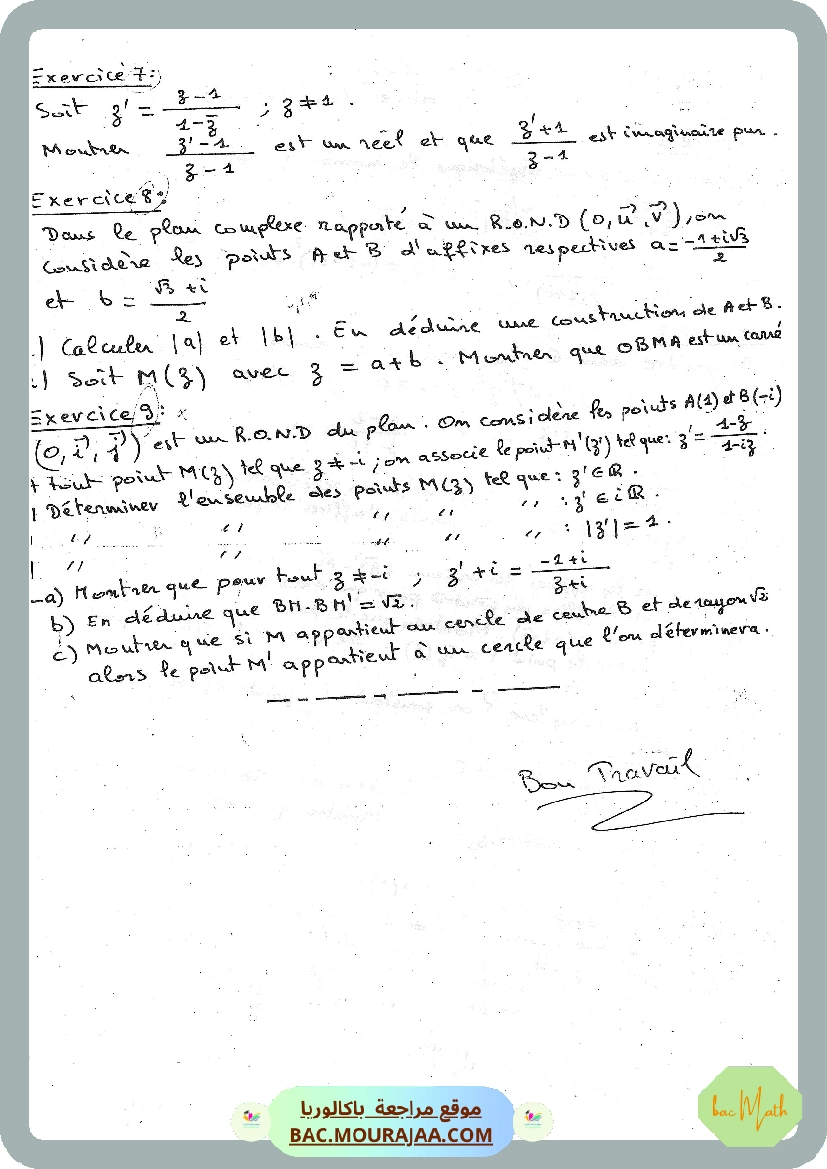 Exercice 7:
Soit z' = (z-1)/(1-z̄) ; z ≠ 1.
Montrer (z'-1)/(z-1) est un réel et que (z'+1)/(z-1) est imaginaire pur.
Exercice 8:
Dans le plan complexe rapporté à un R.O.N.D (O, u⃗, v⃗), on
considère les points A et B d'affixes respectives a = (-1+i√3)/2
et b = (√3+i)/2
.) Calculer |a| et |b|. En déduire une construction de A et B.
.) Soit M(z) avec z = a+b. Montrer que OBMA est un carré
Exercice 9:
(O, i⃗, j⃗) est un R.O.N.D du plan. On considère les points A(1) et B(-i)
tout point M(z) tel que z ≠ -i ; on associe le point M'(z') tel que: z' = (1-z)/(1-iz).
Déterminer l'ensemble des points M(z) tel que : z' ∈ ℝ.
" " " " " : z' ∈ iℝ.
" " " " " : |z'| = 1.
-a) Montrer que pour tout z ≠ -i ; z'+i = (-1+i)/(z+i)
b) En déduire que BM.BM' = √2.
c) Montrer que si M appartient au cercle de centre B et de rayon √2
alors le point M' appartient à un cercle que l'on déterminera.
Bon Travail
موقع مراجعة باكالوريا
BAC.MOURAJAA.COM
bac Math